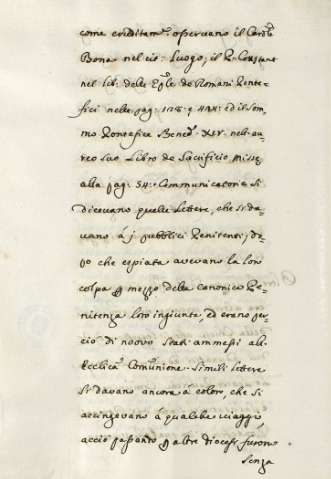 come eruditam.te osservano il Card.le
Bona nel cit: Luogo; il P. Constant
nel lib: delle Ep.le de Romani Ponte=
fici nella pag: ed il Som=
mo Pontefice Bened.o XIV. nell'au=
reo suo Libro de Sacrificio Missæ
alla pag: 54: Communicatorie si
dicevano quelle Lettere, che si da=
vano á i pubblici Penitenti, do=
po che espiata avevano la loro
colpa p mezzo della canonica Pe=
nitenza loro ingiunta, ed erano per=
ció di nuovo stati ammessi all'
Eccl.ica Comunione. Simili Lettere
si davano ancora á coloro, che si
accingevano á qualche viaggio,
acció passando p altre diocesi furon
senza